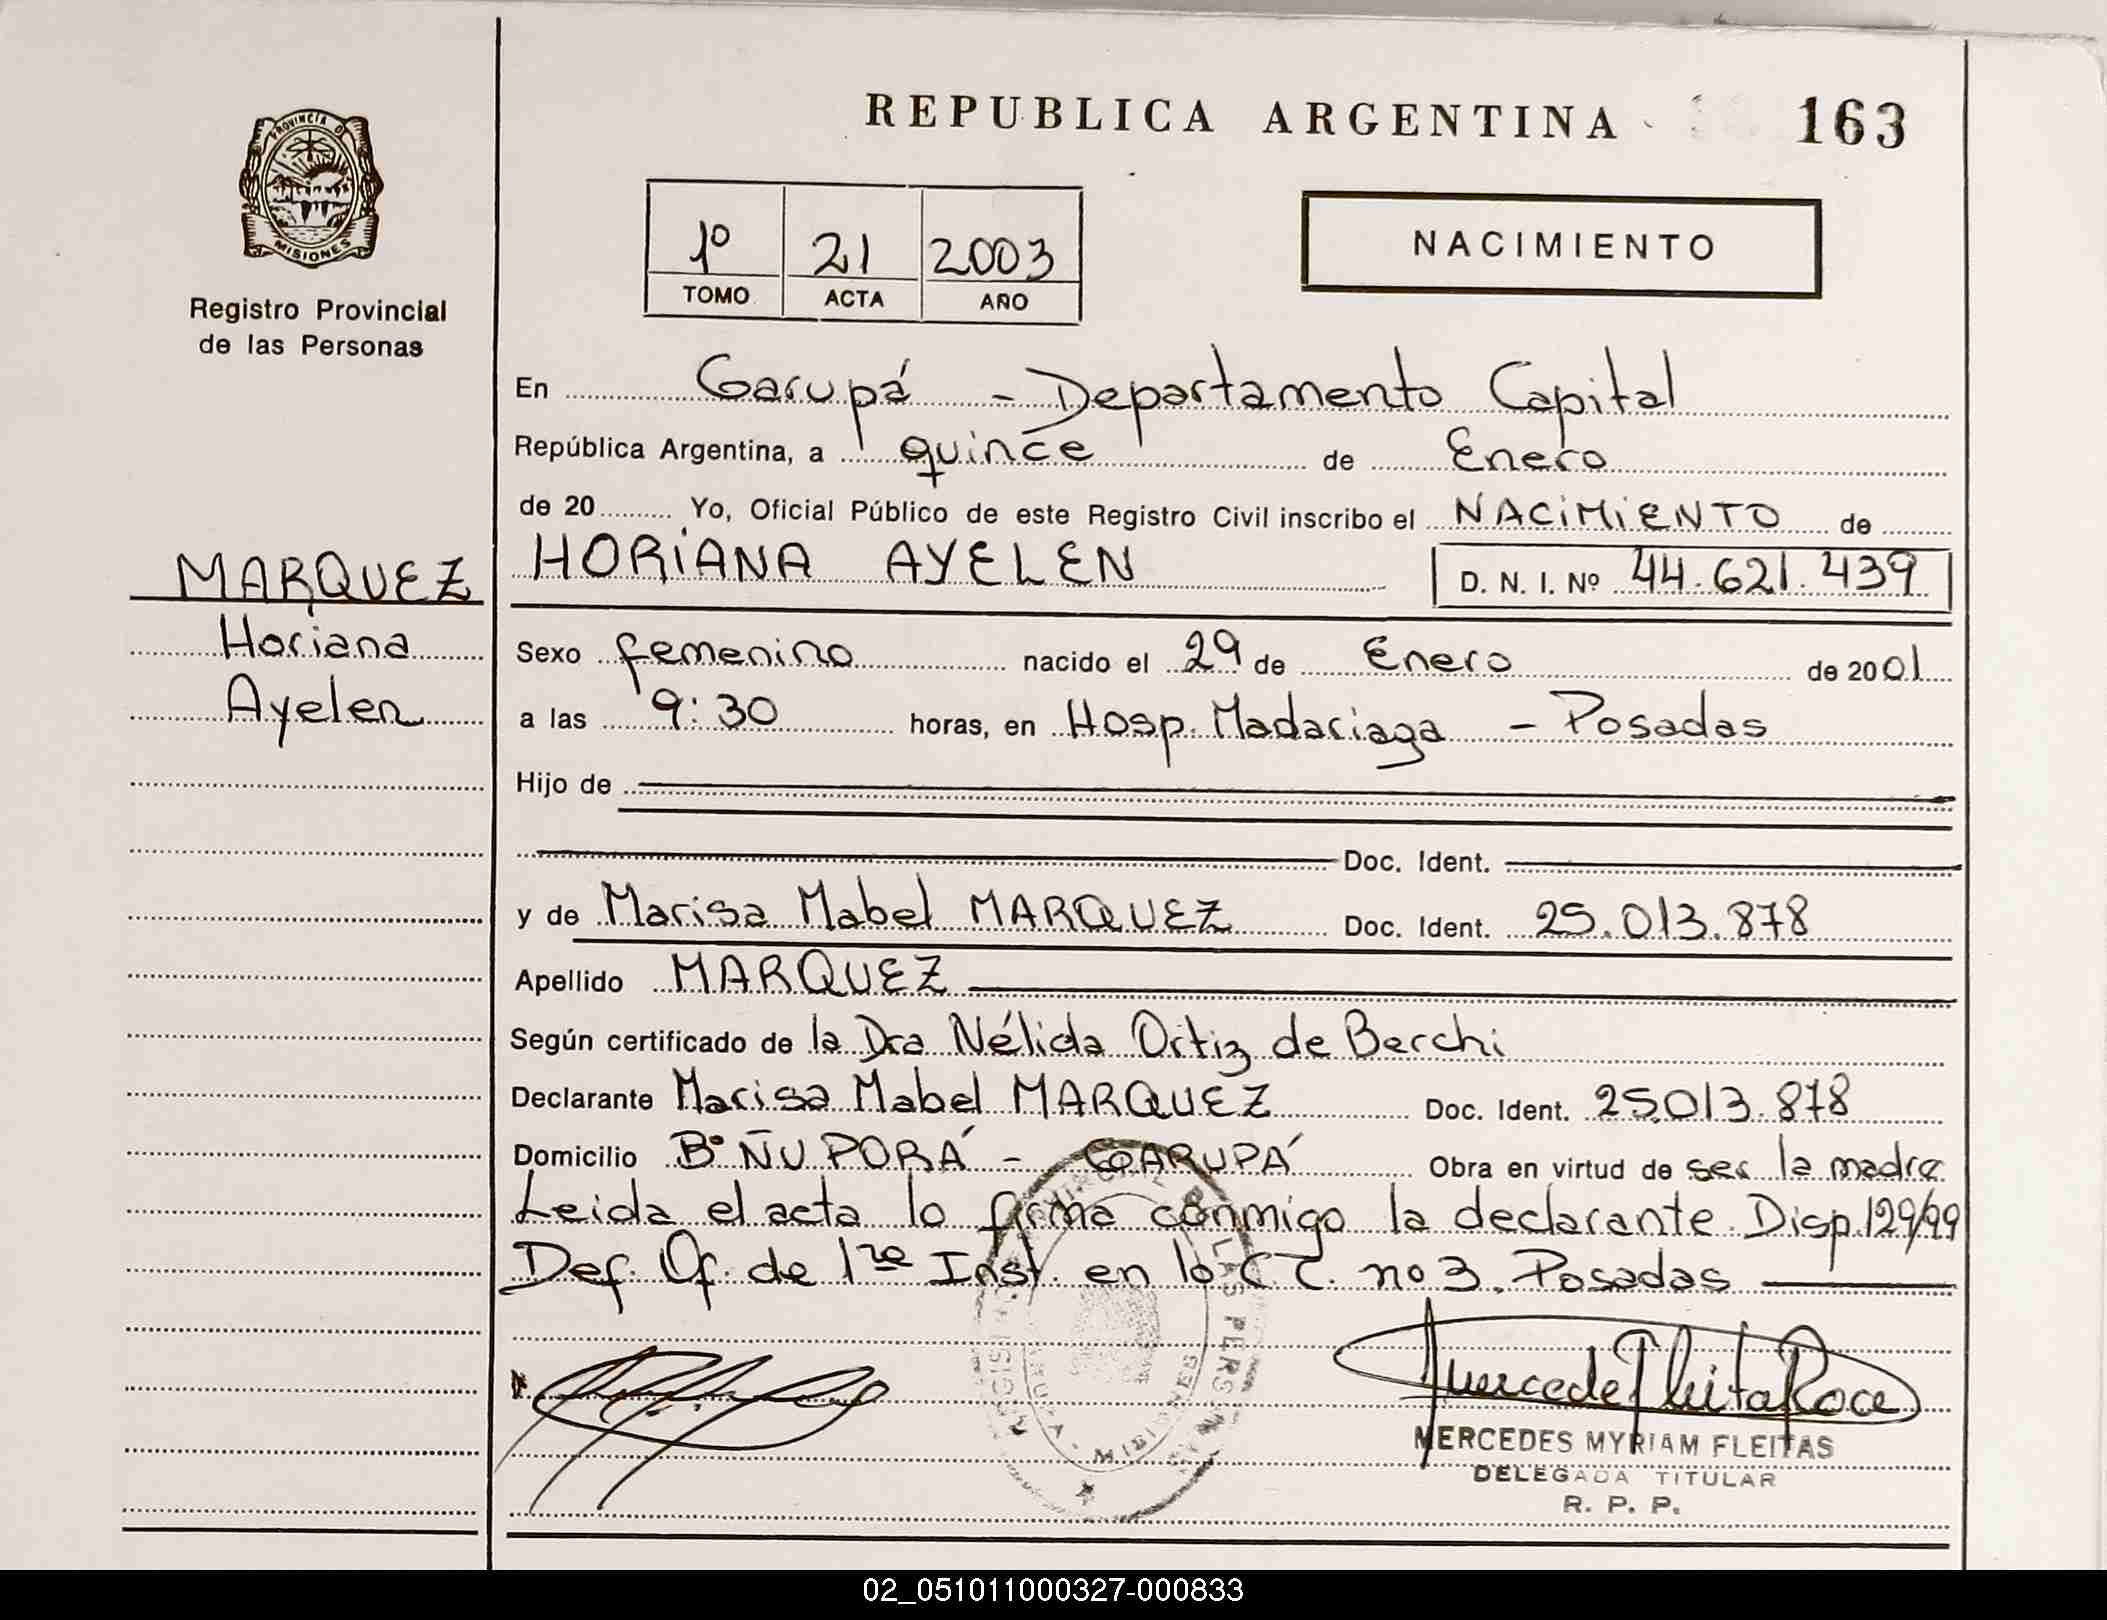 REPUBLICA ARGENTINA
163
PROVINCIA DE
MISIONES
Registro Provincial
de las Personas
1º 21 2003
TOMO ACTA AÑO
NACIMIENTO
En Garupá - Departamento Capital
República Argentina, a quince de Enero
de 20 Yo, Oficial Público de este Registro Civil inscribo el NACIMIENTO de
HORIANA AYELEN D. N. I. Nº 44.621.439
MARQUEZ
Horiana
Ayelen
Sexo femenino nacido el 29 de Enero de 2001
a las 9:30 horas, en Hosp. Madariaga - Posadas
Hijo de
Doc. Ident.
y de Marisa Mabel MARQUEZ Doc. Ident. 25.013.878
Apellido MARQUEZ
Según certificado de la Dra Nélida Ortiz de Berchi
Declarante Marisa Mabel MARQUEZ Doc. Ident. 25.013.878
Domicilio Bº ÑU PORÁ - GARUPÁ Obra en virtud de ser la madre
Leida el acta lo firma conmigo la declarante. Disp. 129/99
Def. Of. de 1ra Inst. en lo C C. no 3. Posadas
MISIONES
MERCEDES MYRIAM FLEITAS
DELEGADA TITULAR
R. P. P.
02_051011000327-000833